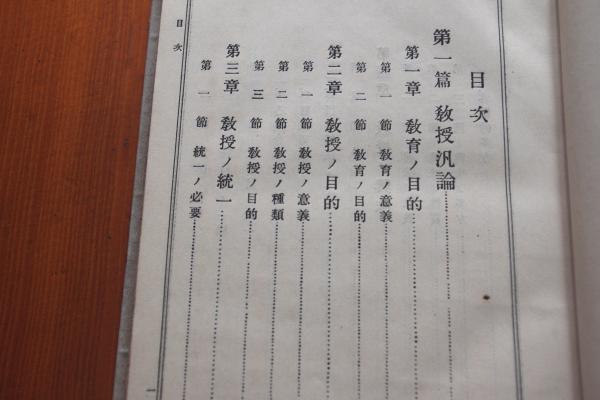 目次
第一篇 教授汎論
第一章 教育ノ目的
第一節 教育ノ意義
第二節 教育ノ目的
第二章 教授ノ目的
第一節 教授ノ意義
第二節 教授ノ種類
第三節 教授ノ目的
第三章 教授ノ統一
第一節 統一ノ必要
目次
一